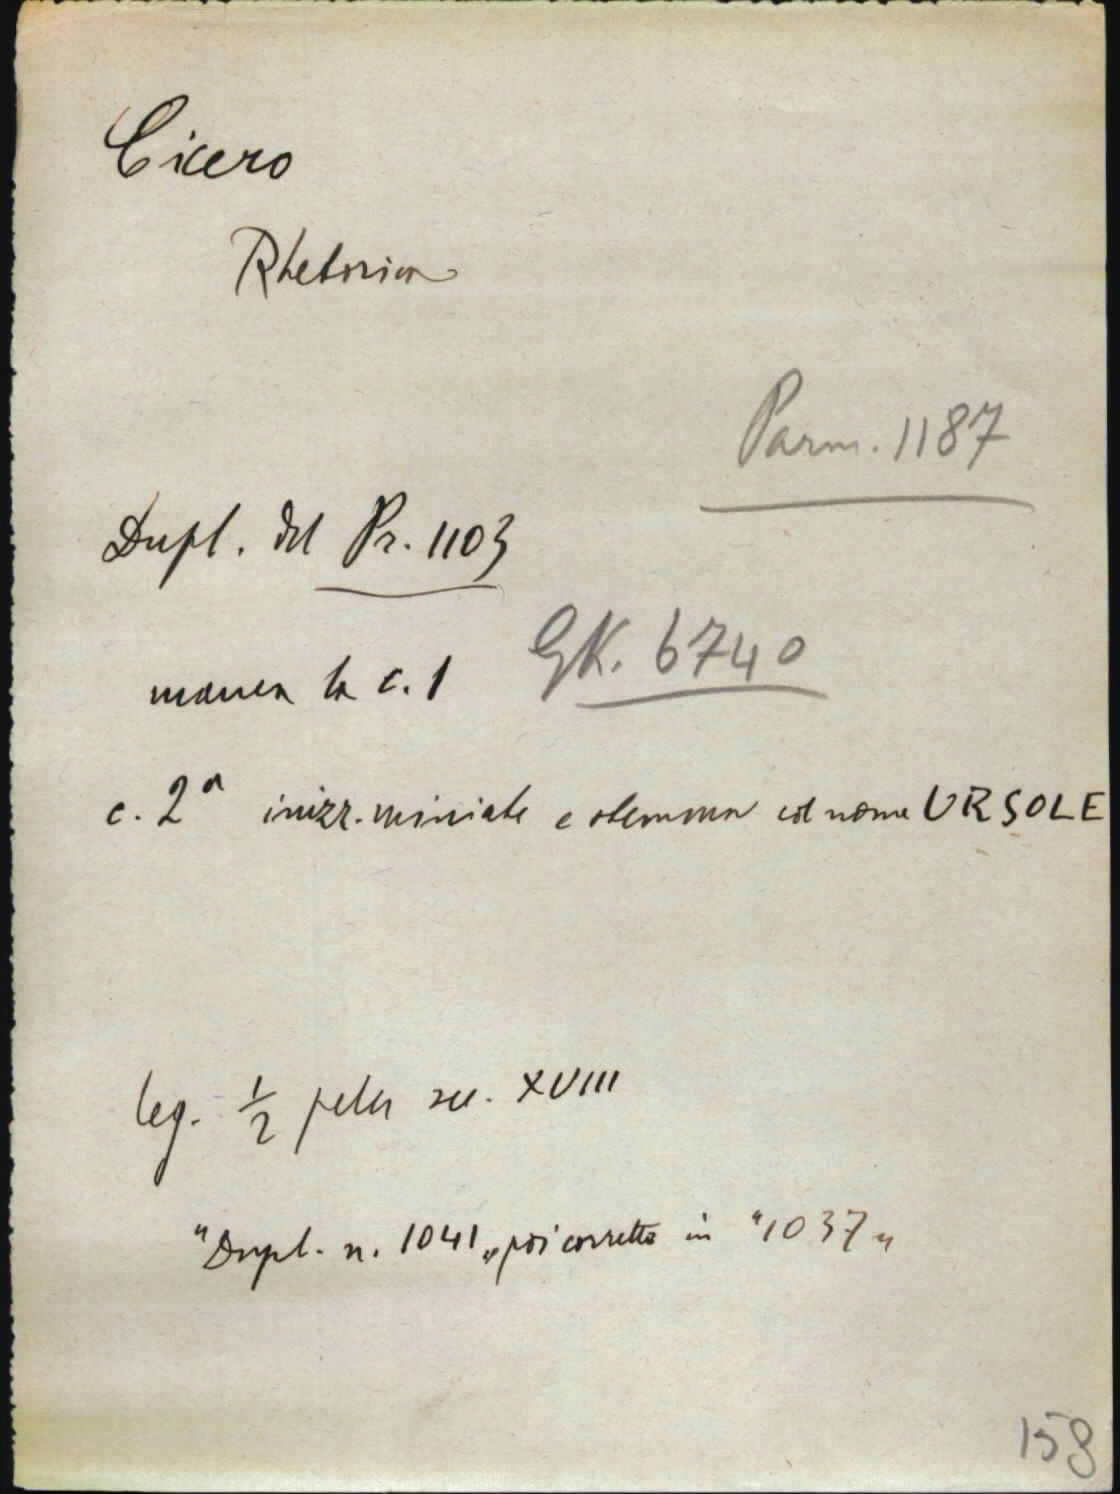 Cicero
Rhetorica
Parm. 1187
Dupl. del Pr. 1103
GK. 6740
manca la c. 1
c. 2ª inizz. miniate e stemma col nome URSOLE
leg. 1/2 pelle sec. XVIII
"Dupl. n. 1041" poi corretto in "1037"
158